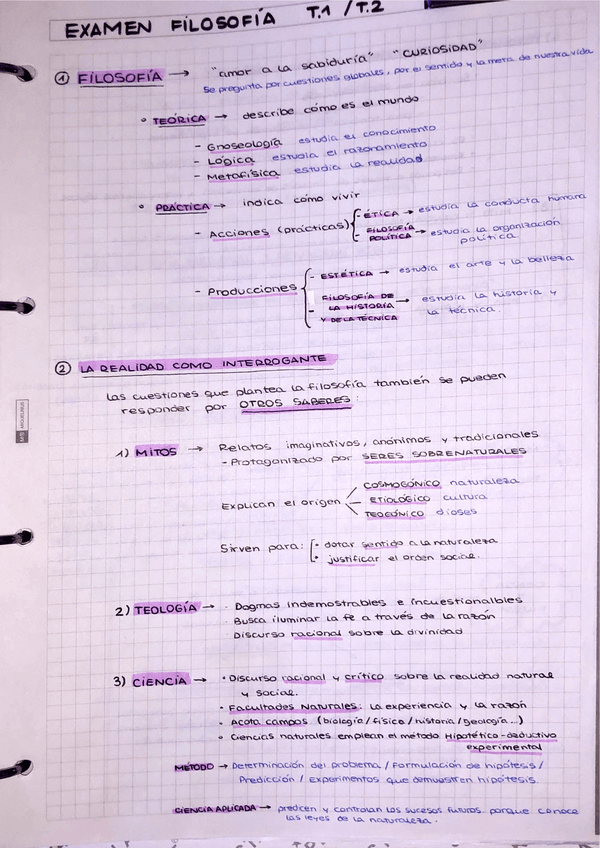 EXAMEN FILOSOFÍA T.1 / T.2
① FILOSOFÍA → "amor a la sabiduría" "CURIOSIDAD"
Se pregunta por cuestiones globales, por el sentido y la meta de nuestra vida
• TEÓRICA → describe cómo es el mundo
- Gnoseología estudia el conocimiento
- Lógica estudia el razonamiento
- Metafísica estudia la realidad
• PRÁCTICA → indica cómo vivir
- Acciones (prácticas)
- ÉTICA → estudia la conducta humana
- FILOSOFÍA POLÍTICA → estudia la organización
política
- Producciones
- ESTÉTICA → estudia el arte y la belleza
- FILOSOFÍA DE
LA HISTORIA → estudia la historia y
Y DE LA TÉCNICA la técnica.
② LA REALIDAD COMO INTERROGANTE
Las cuestiones que plantea la filosofía también se pueden
responder por OTROS SABERES:
1) MITOS → Relatos imaginativos, anónimos y tradicionales
- Protagonizado por SERES SOBRENATURALES
Explican el origen
COSMOGÓNICO naturaleza
ETIOLÓGICO cultura
TEOGÓNICO dioses
Sirven para:
- dotar sentido a la naturaleza
- justificar el orden social.
2) TEOLOGÍA → · Dogmas indemostrables e incuestionalbles
Busca iluminar la fe a través de la razón
Discurso racional sobre la divinidad
3) CIENCIA → • Discurso racional y crítico sobre la realidad natural
y social.
• Facultades Naturales: la experiencia y la razón
• Acota campos (biología/físico/historia/geología...)
• Ciencias naturales emplean el método Hipotético-deductivo
experimental
MÉTODO → Determinación del problema / Formulación de hipótesis /
Predicción / Experimentos que demuestren hipótesis.
CIENCIA APLICADA → predicen y controlan los sucesos futuros. porque conoce
las leyes de la naturaleza.